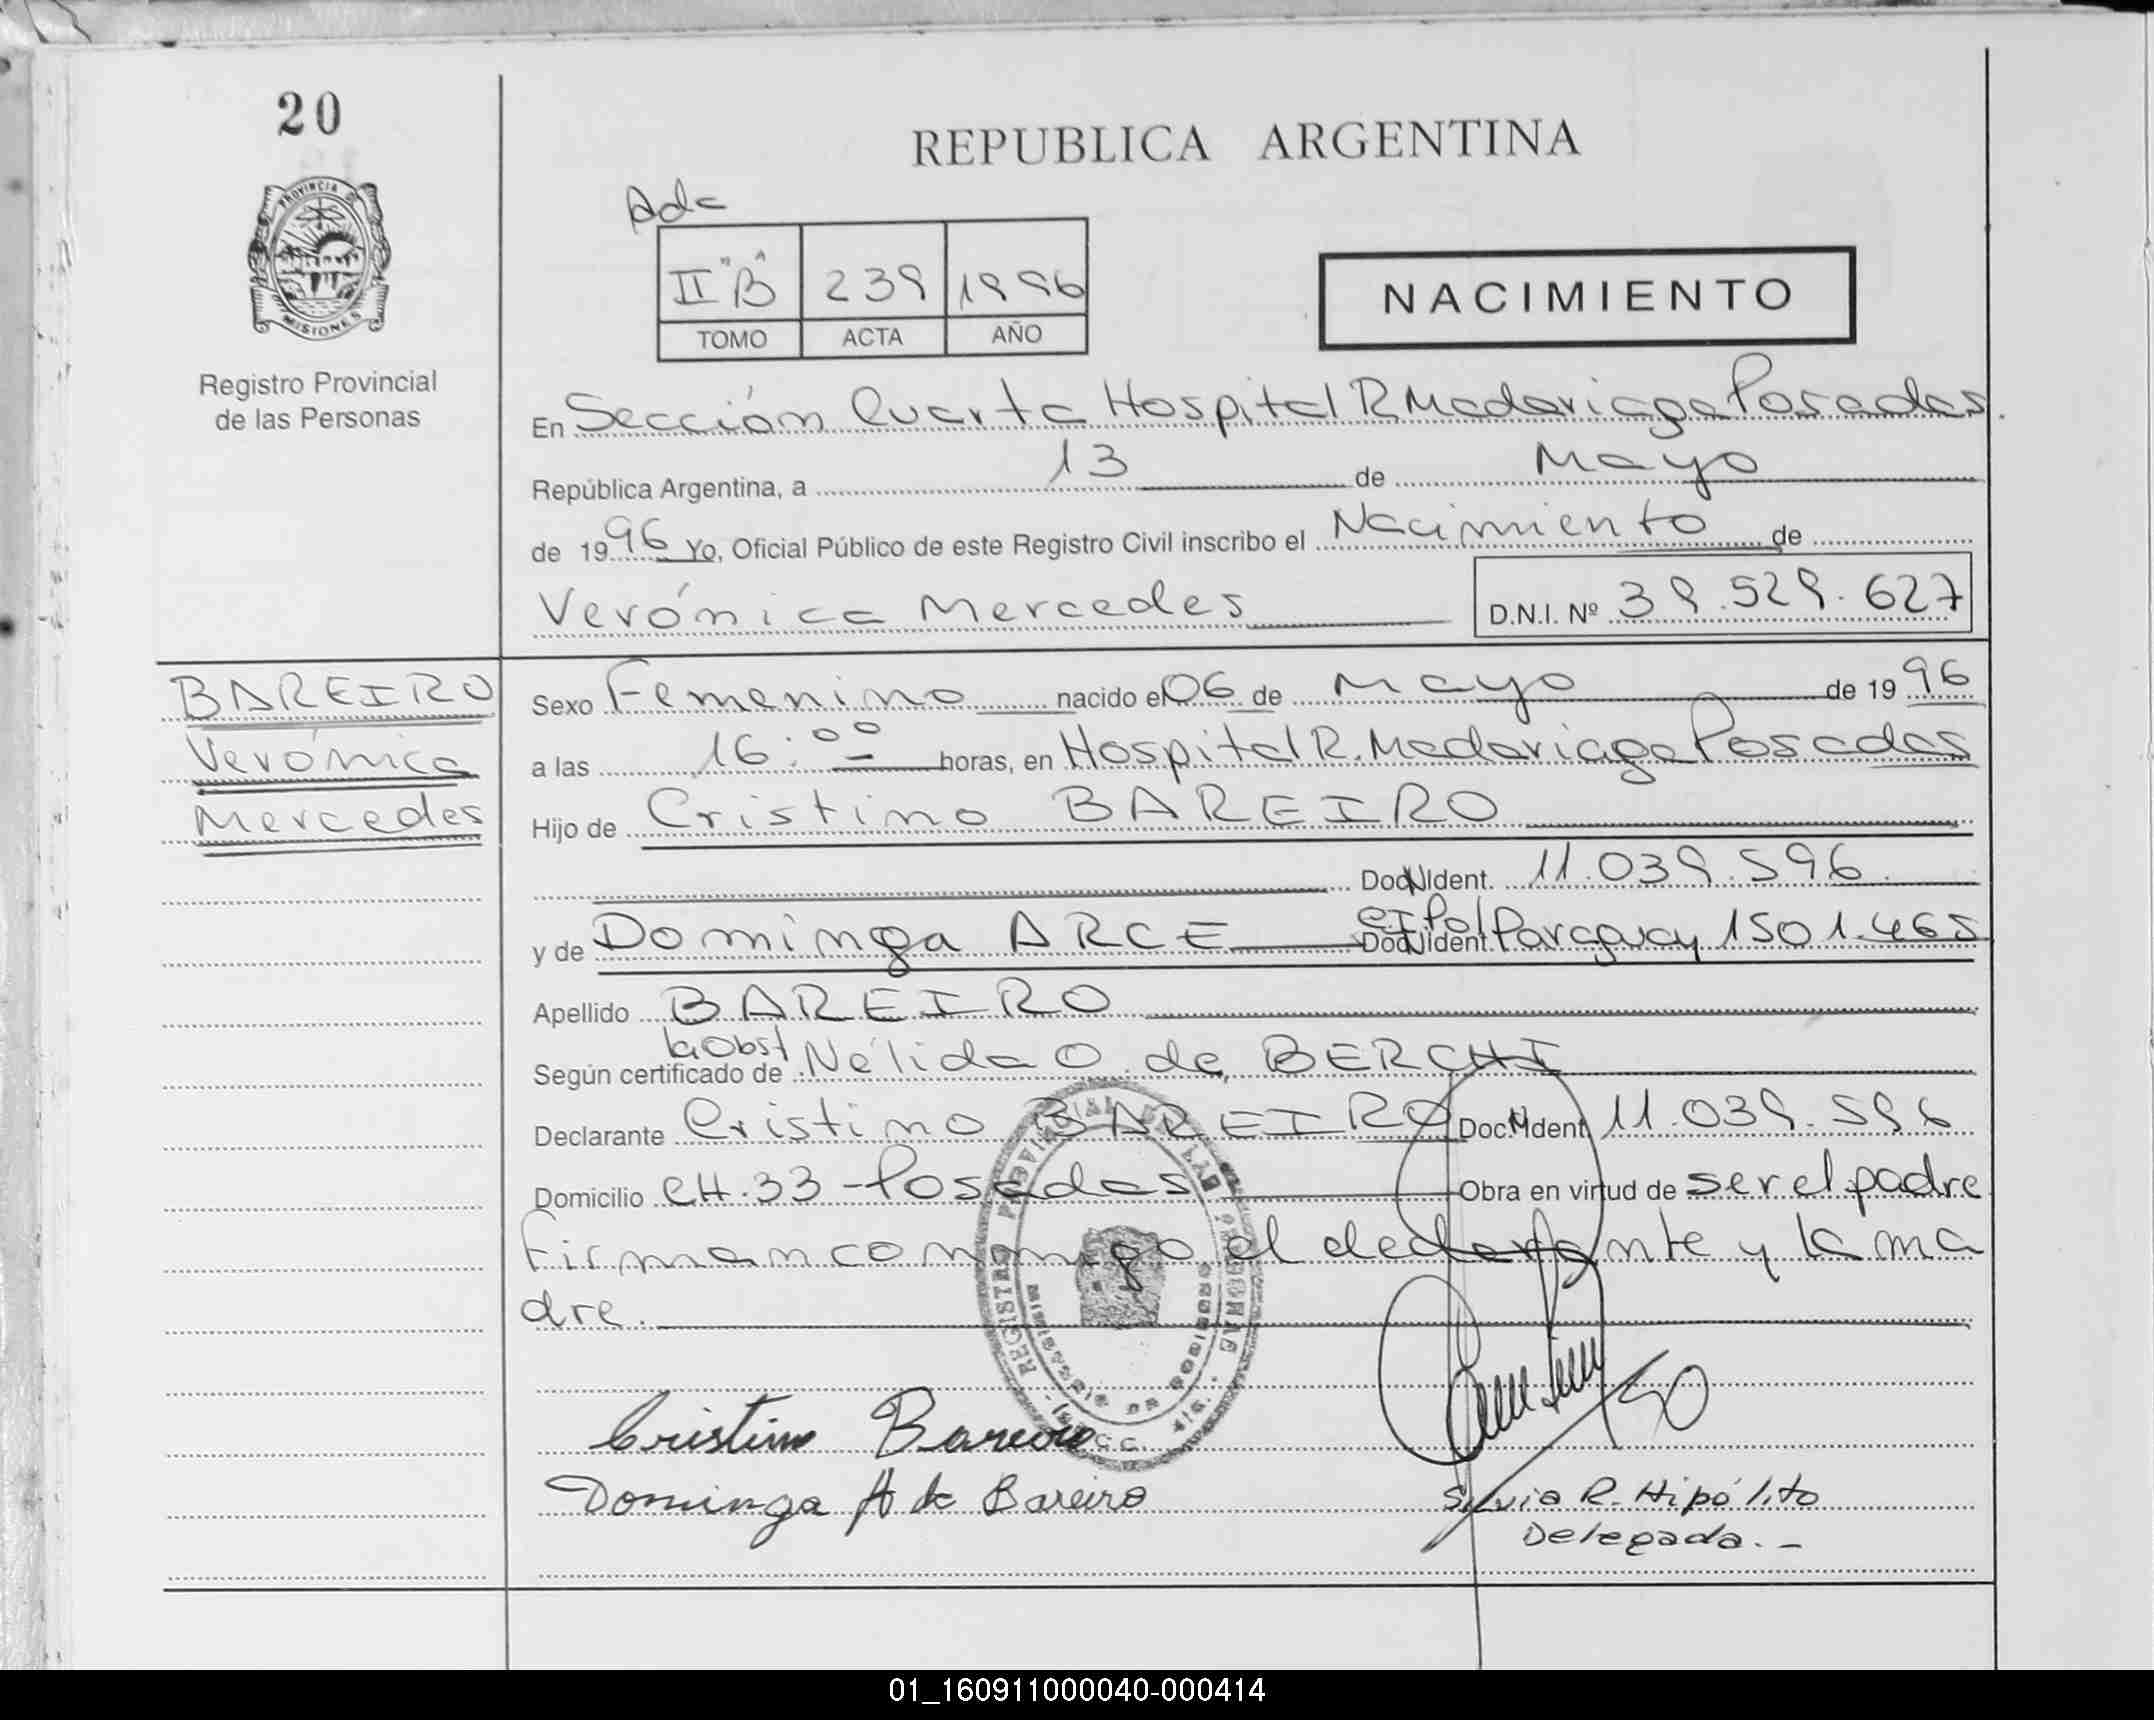 20
REPUBLICA ARGENTINA
PROVINCIA DE
MISIONES
Registro Provincial
de las Personas
Adc
II "B" 239 1996
TOMO ACTA AÑO
NACIMIENTO
En Sección Cuarta Hospital R. Madariaga Posadas.
República Argentina, a 13 de Mayo
de 1996 Yo, Oficial Público de este Registro Civil inscribo el Nacimiento de
Verónica Mercedes D.N.I. Nº 39.529.627
BAREIRO
Verónica
Mercedes
Sexo Femenino nacido el 06 de Mayo de 1996
a las 16:00 horas, en Hospital R. Madariaga Posadas
Hijo de Cristino BAREIRO
Doc N Ident. 11.039.596
y de Dominga ARCE CI Pol Doc N Ident. Paraguay 1501.465
Apellido BAREIRO
Según certificado de la Obst Nélida O. de BERCHI
Declarante Cristino BAREIRO Doc. N Ident 11.039.596
Domicilio CH.33 - Posadas Obra en virtud de ser el padre
Firman conmigo el declarante y la ma
dre.
REGISTRO PROVINCIAL DE LAS PERSONAS
MINISTERIO DE GOBIERNO
Cristino Bareiro
Dominga A de Bareiro
Silvia R. Hipólito
Delegada.-
01_160911000040-000414